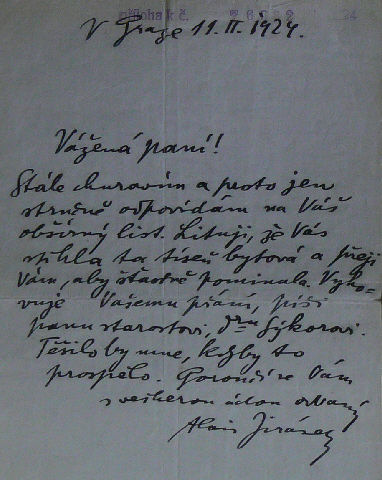 příloha k č.
V Praze 11.II.1924.
Vážená paní!
Stále churavím a proto jen
stručně odpovídám na Váš
obšírný list. Lituji, že Vás
stihla ta tíseň bytová a přeji
Vám, aby šťastně pominula. Vyho-
vuje Vašemu přání, píši
panu starostovi, Dru Sýkorovi.
Těšilo by mne, kdyby to
prospělo. Poroučí se Vám
s veškerou úctou oddaný
Alois Jirásek